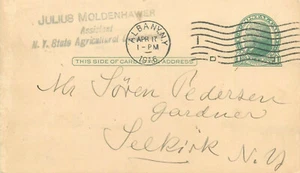 JULIUS MOLDENHAWER
Resident
N. Y. State Agricultural
ALBANY, N.Y.
APR 11
1-PM
1916
1
D
THIS SIDE OF CARD IS FOR ADDRESS
Mr Sören Pedersen
gardner
Selkirk N.Y